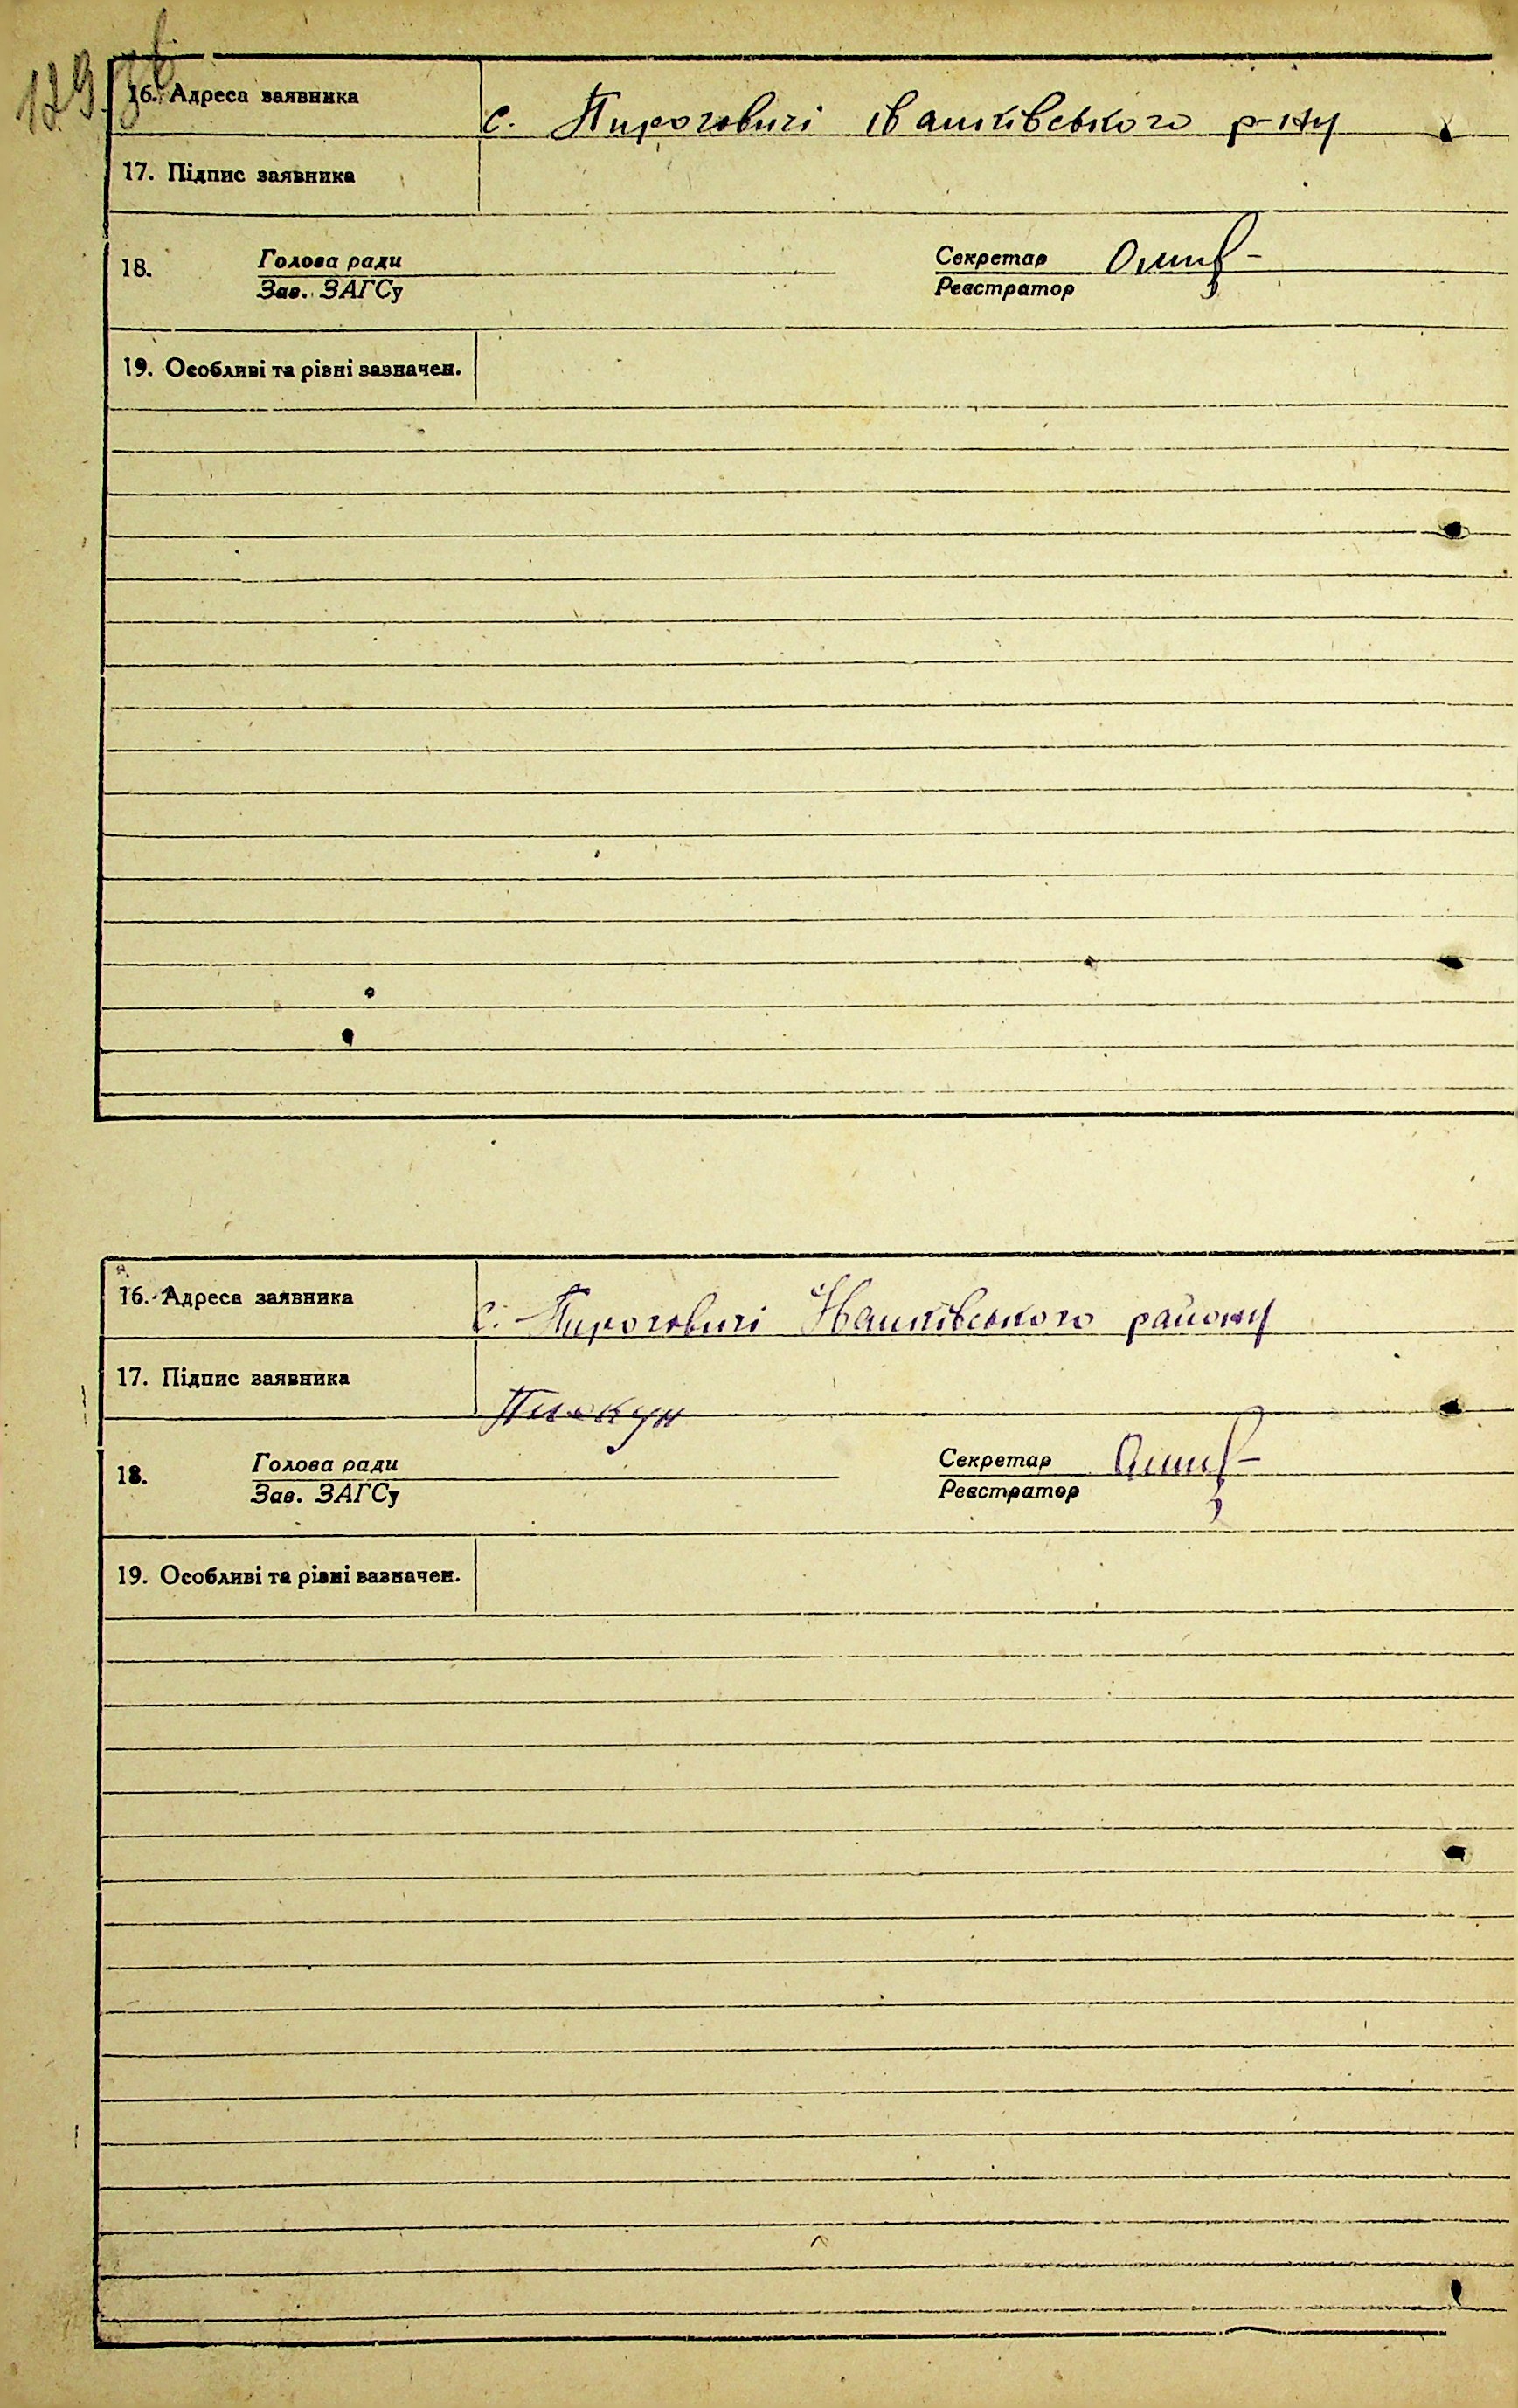 129 зв
16. Адреса заявника с. Пироговичі іванківського р-ну
17. Підпис заявника
18. Голова ради Секретар
Зав. ЗАГСу Реєстратор
19. Особливі та різні зазначен.
16. Адреса заявника с. Пироговичі Іванківського району
17. Підпис заявника
18. Голова ради Секретар
Зав. ЗАГСу Реєстратор
19. Особливі та різні зазначен.